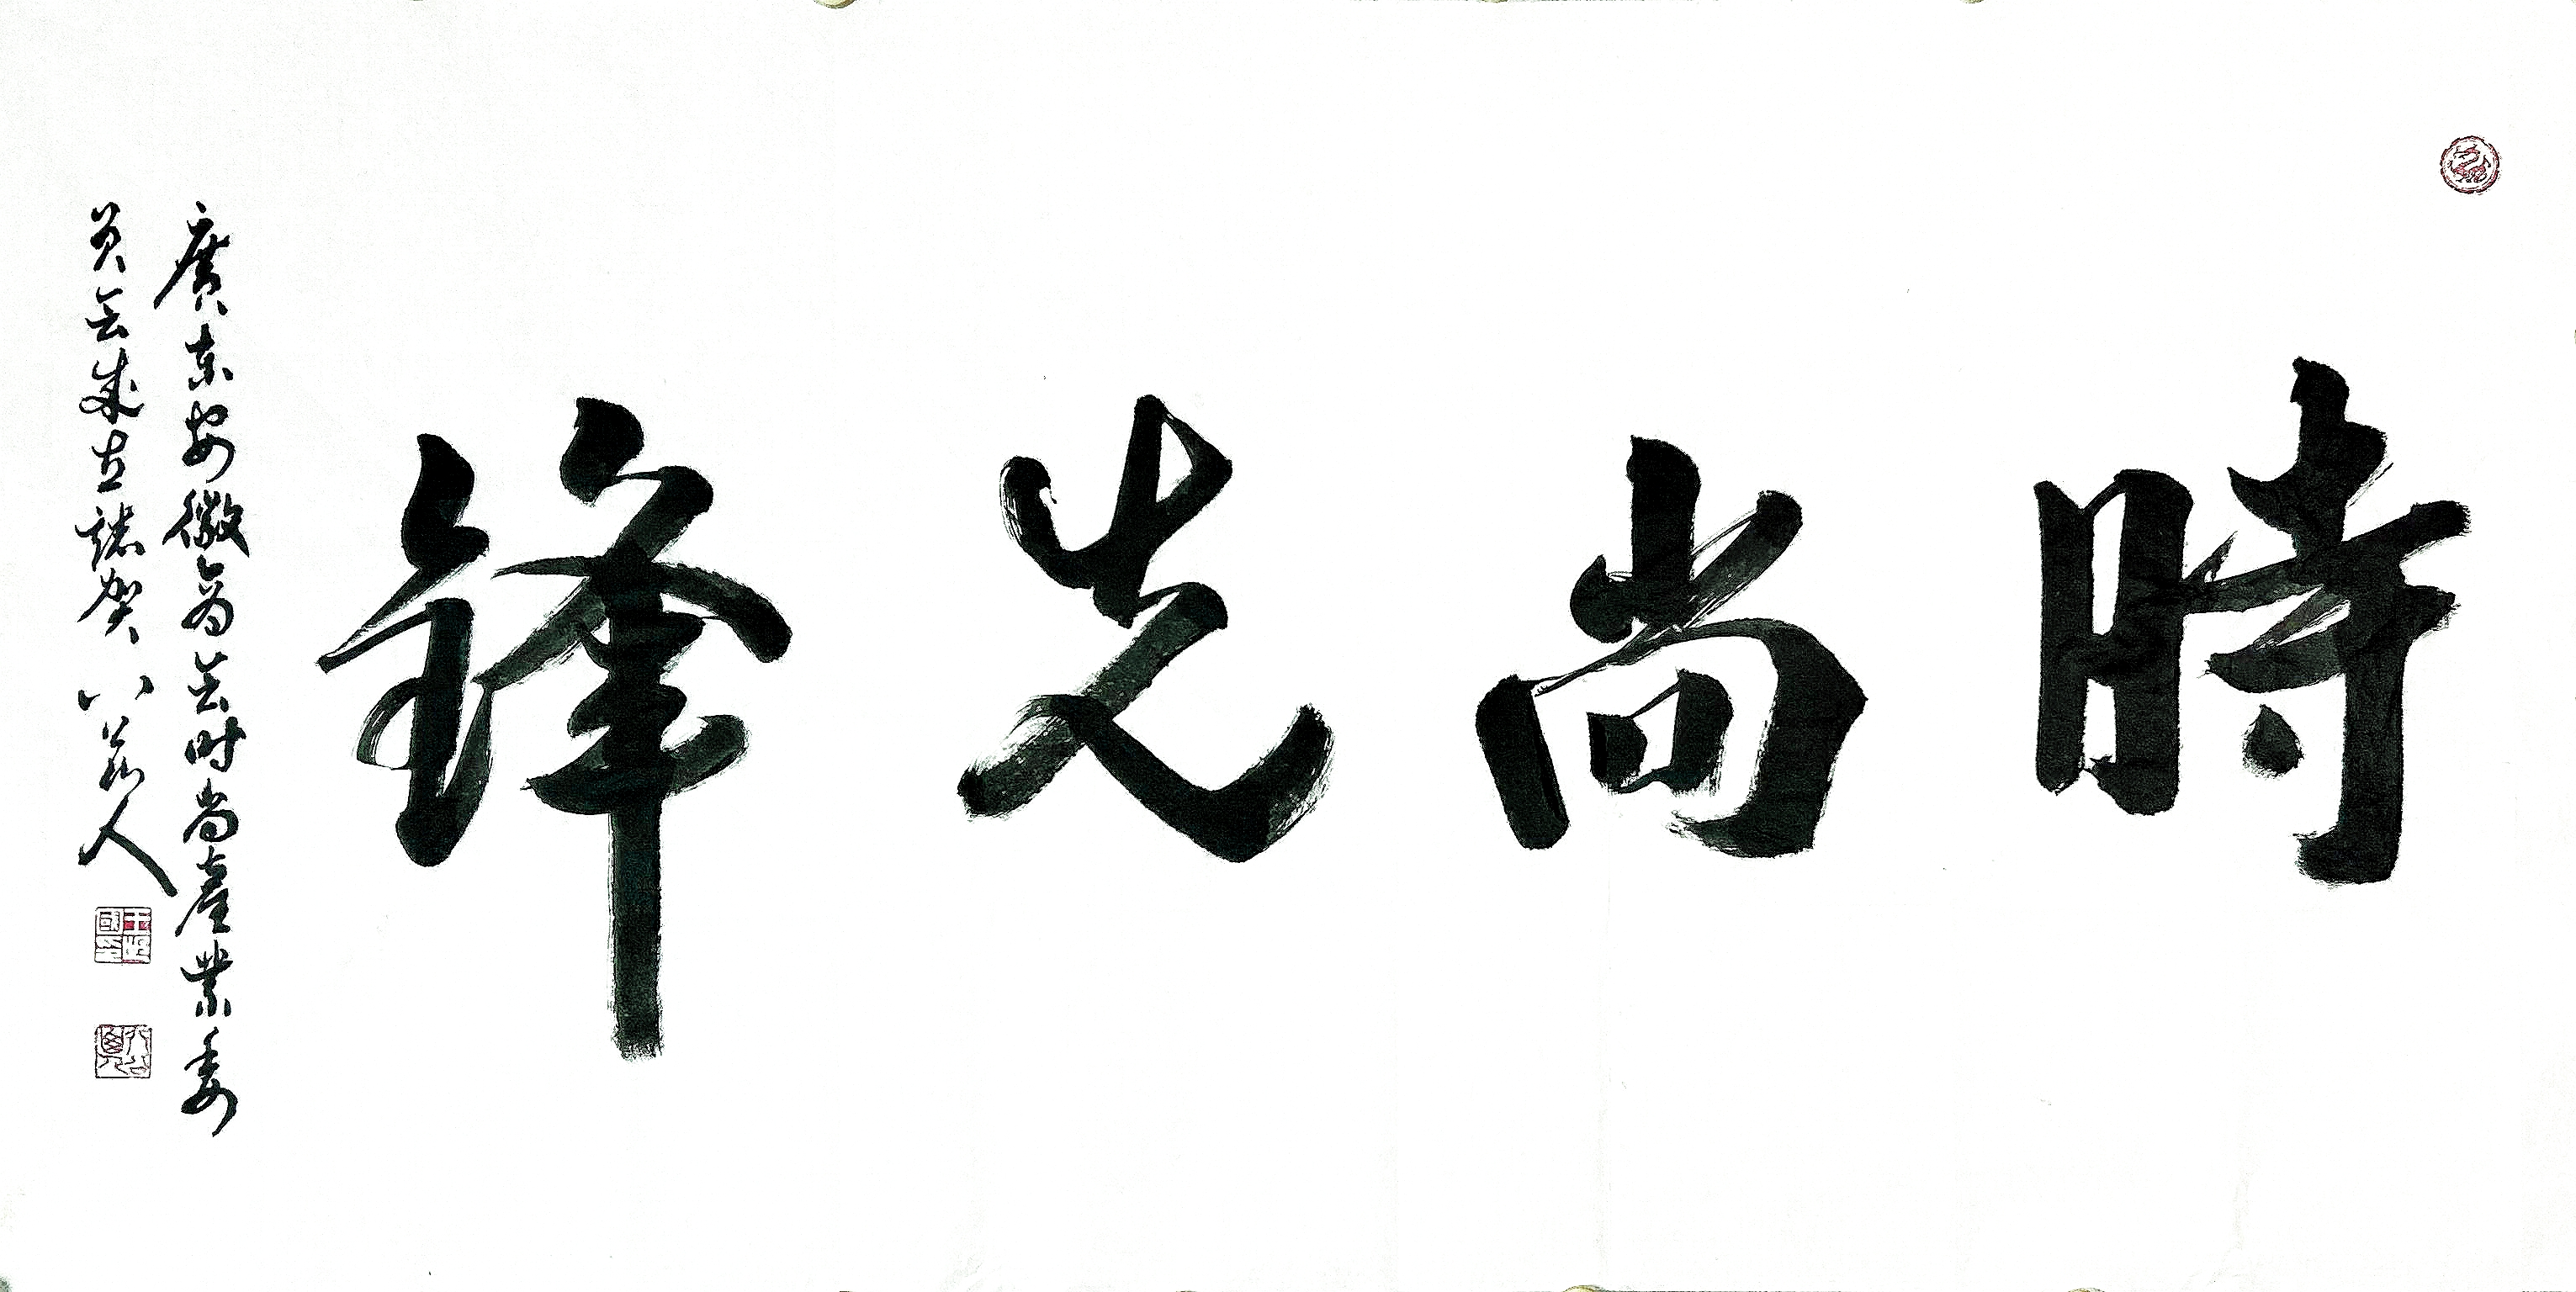 時尚先鋒
廣东安徽商会时尚產業委
员会成立誌贺 八公人